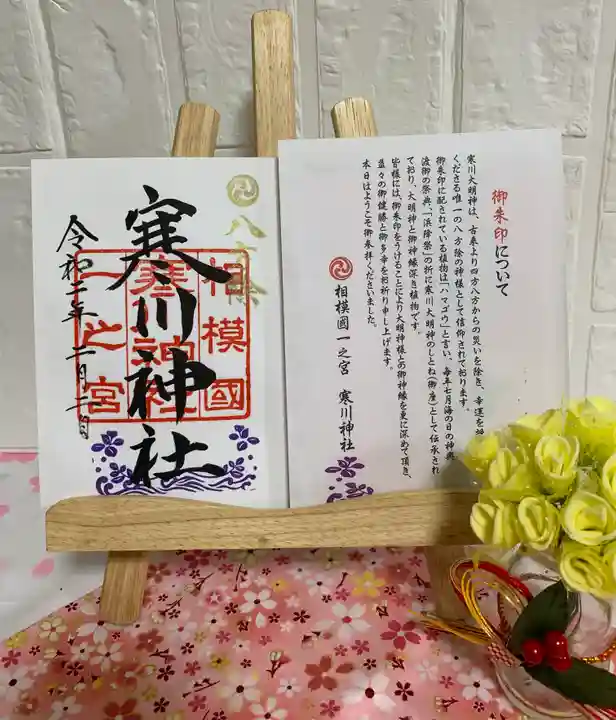 八方除
相模國
寒川神社
一之宮
寒川神社
令和二年二月二日
御朱印について
寒川大明神は、古来より四方八方からの災いを除き、幸運を
くださる唯一の八方除の神様として信仰されております。
御朱印に配されている植物は「ハマゴウ」と言い、毎年七月海の日の神輿
渡御の祭典、「浜降祭」の折に寒川大明神のしとね(御座)として伝承され
ており、大明神と御神縁深き植物です。
皆様には、御朱印をうけることにより大明神様との御神縁を更に深めて頂き、
益々の御健勝と御多幸を祈り申し上げます。
本日はようこそ御参拝くださいました。
相模國一之宮 寒川神社